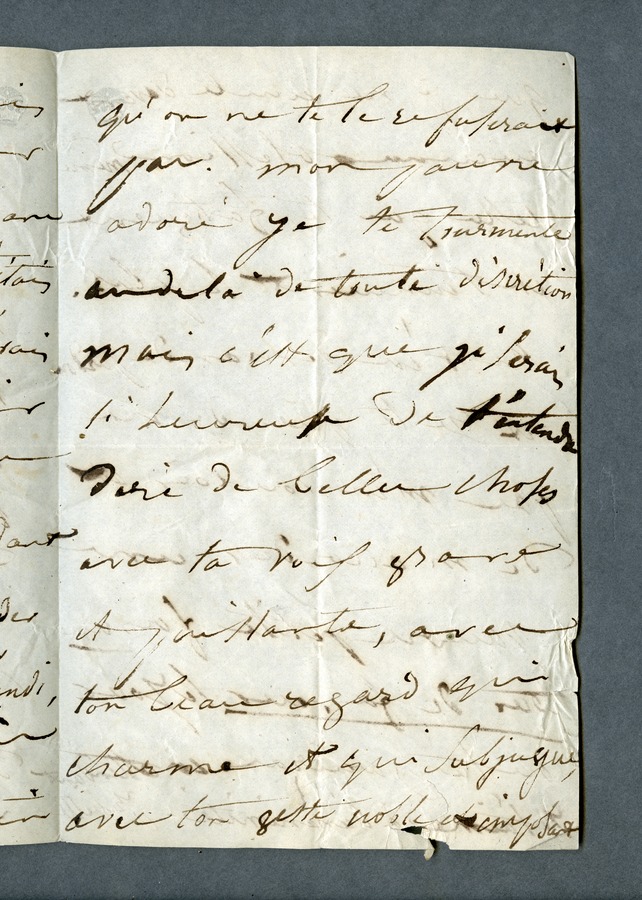 qu'on ne te le refuserait
pas. mon pauvre
adoré je te tourmente
au dela de toute discrétion
mais c'est que je serais
si heureuse de t'entendre
dire de belles choses
avec ta voix grave
et puissante, avec
ton beau regard qui
charme et qui subjugue,
avec ton geste noble et imposant